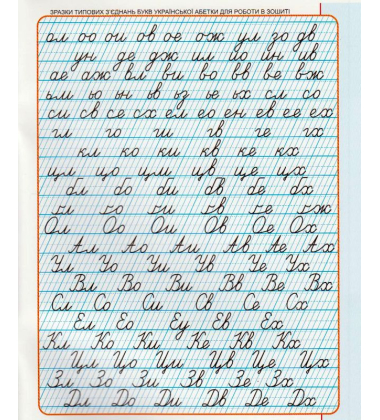 ЗРАЗКИ ТИПОВИХ З'ЄДНАНЬ БУКВ УКРАЇНСЬКОЇ АБЕТКИ ДЛЯ РОБОТИ В ЗОШИТІ
ол оо ои ов ое ож ул зо дв
ун де дж ил ио ин ив
ае аж вл ви во вв ве вж
ьми ьо ьн ьв ьз ье ьх сл со
си св се сх ел ео ен ев ее ех
гл го ги гв ге гх
кл ко ки кв ке кх
цл цо цм цв це цх
бл бо би бв бе бх
Ол Оо Ои Ов Ое Ох
Ал Ао Аи Ав Ае Ах
Ул Уо Уи Ув Уе Ух
Вл Во Ви Вв Ве Вх
Сл Со Си Св Се Сх
Ел Ео Еу Ев Ех
Кл Ко Ки Ке Кв Кх
Цл Цо Ци Цв Це Цх
Зл Зо Зи Зв Зе Зх
Дл До Ди Дв Де Дх